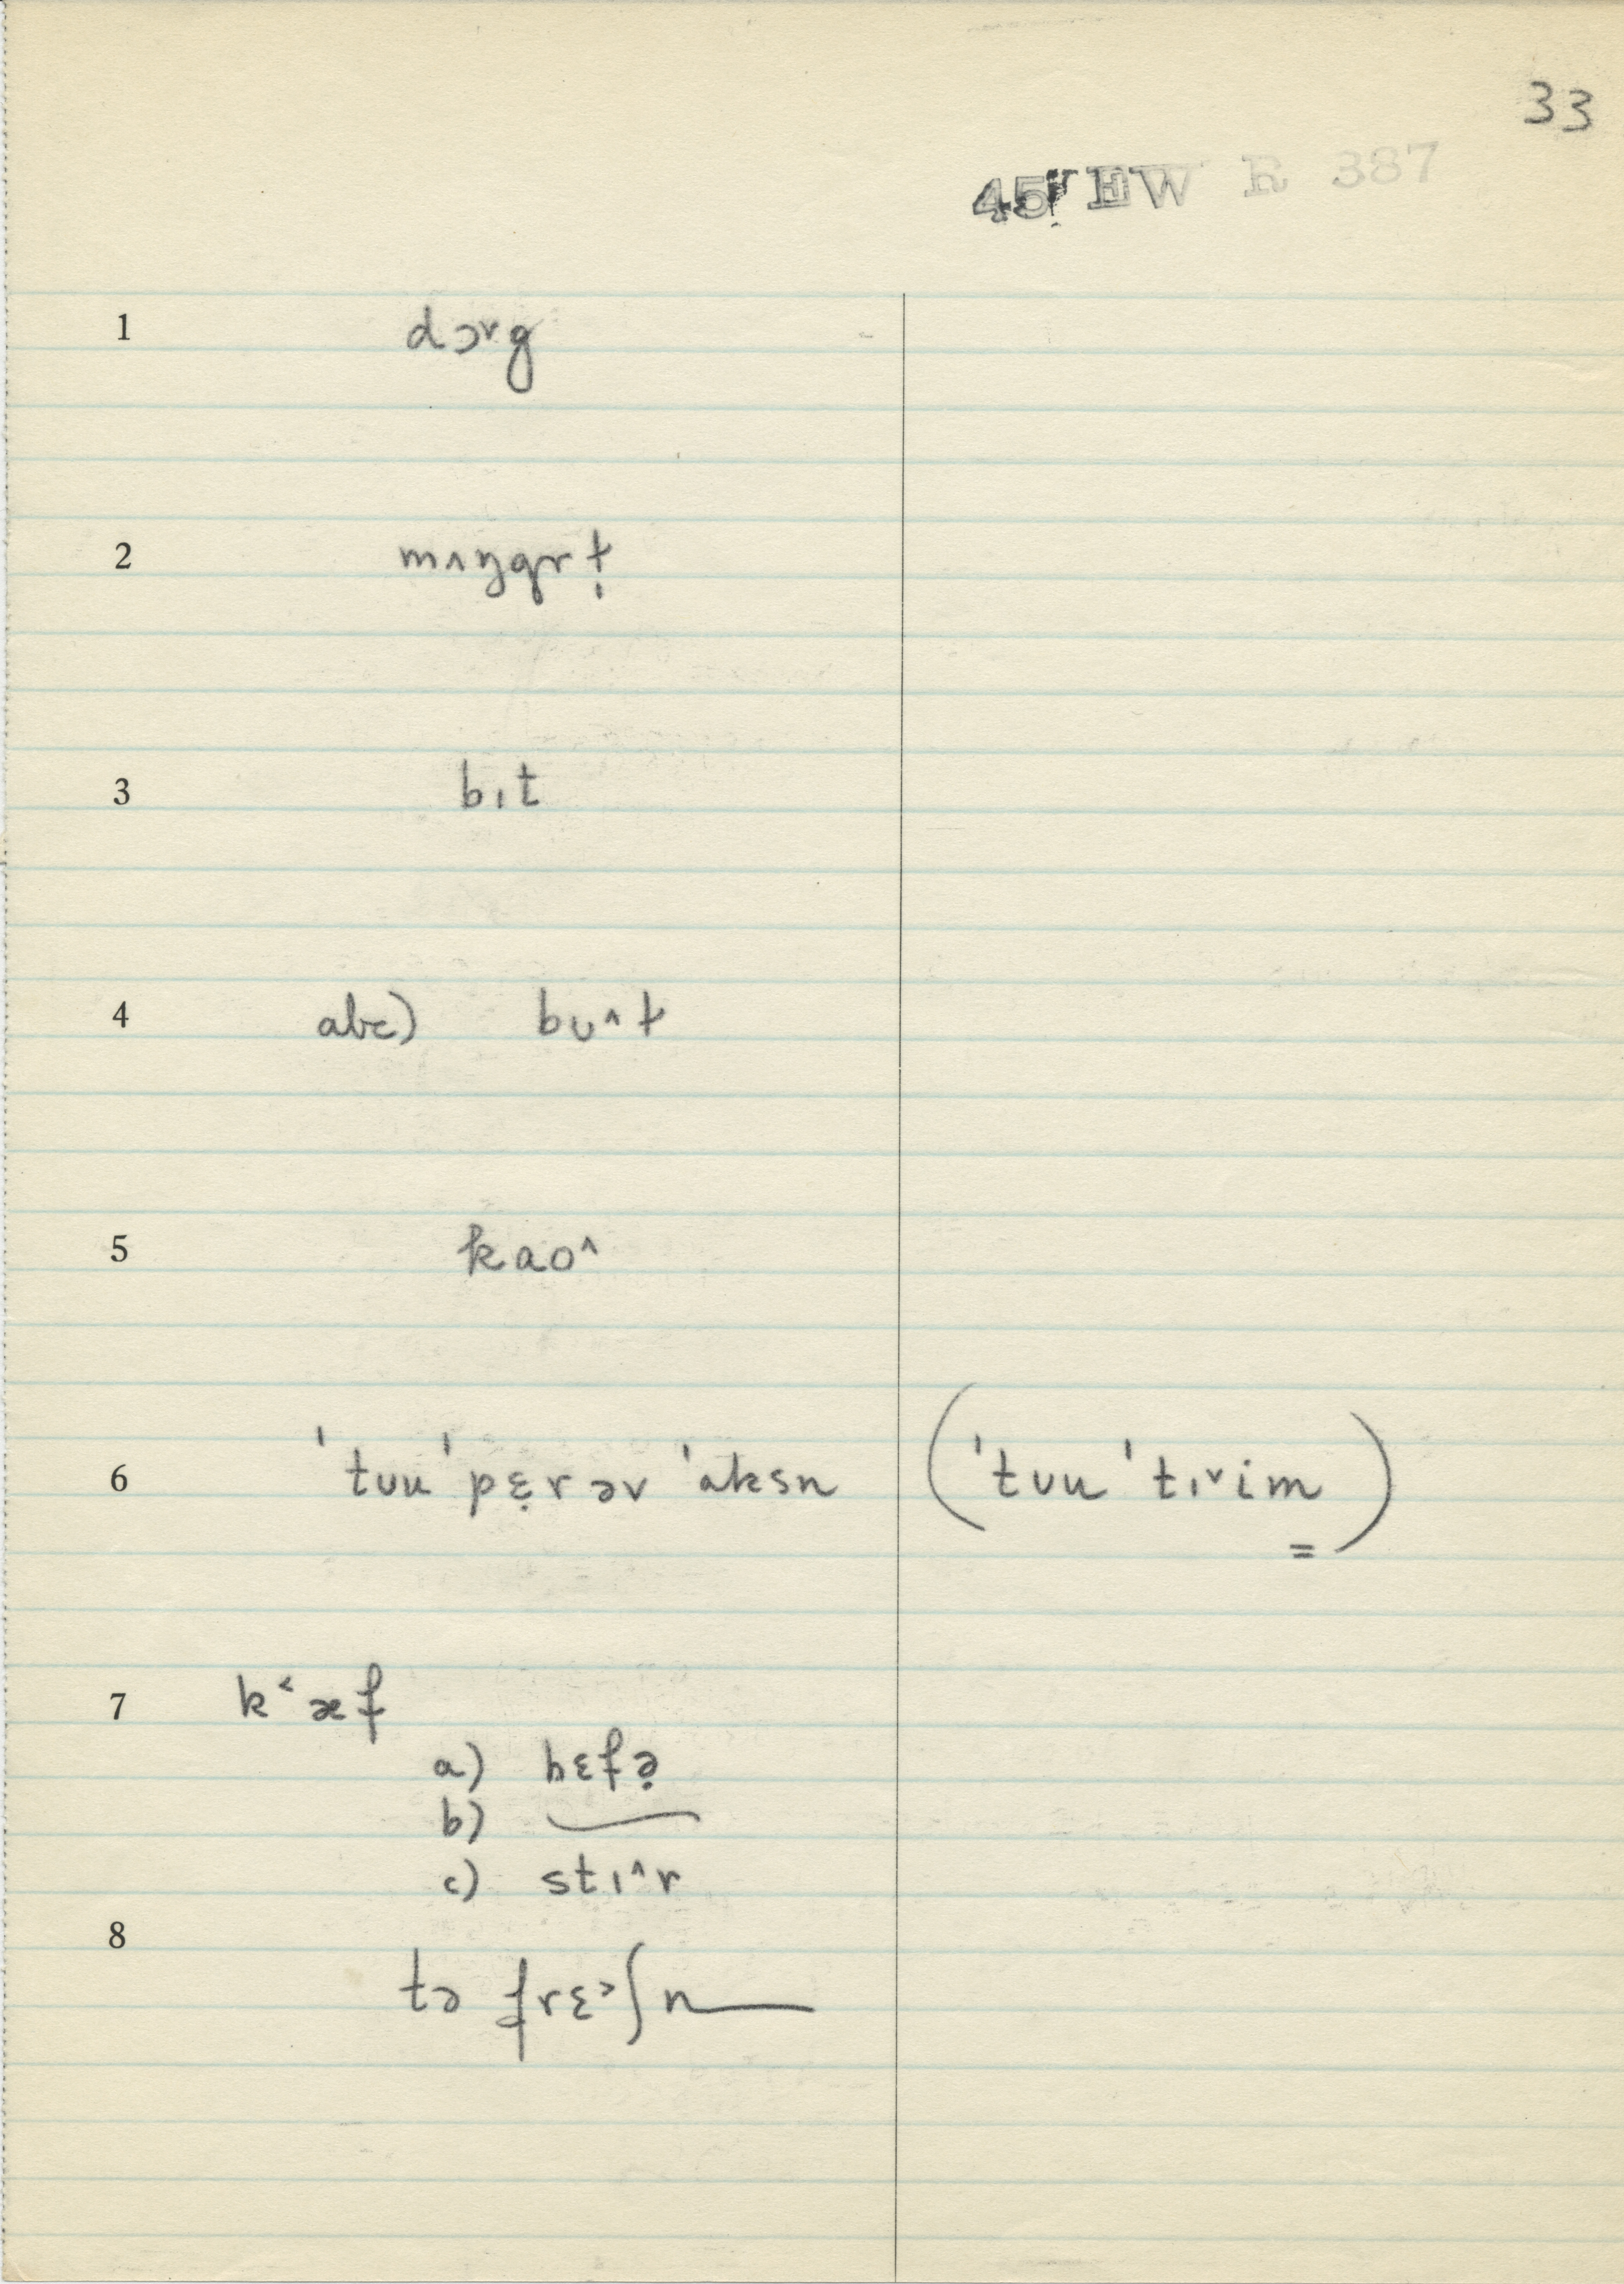 33
45 EW R 387
1 dɔ˅g
2 mʌŋgrt̩
3 bɪt
4 abc) bʊ^t
5 kaʊ^
6 ˈtʊu ˈpɛ̣r əv ˈaksn (ˈtʊu ˈtɪ˅im)
=
7 k˂æf
a) hɛfə̣
b)
c) stɪ^r
8 tə frɛ˃ʃn